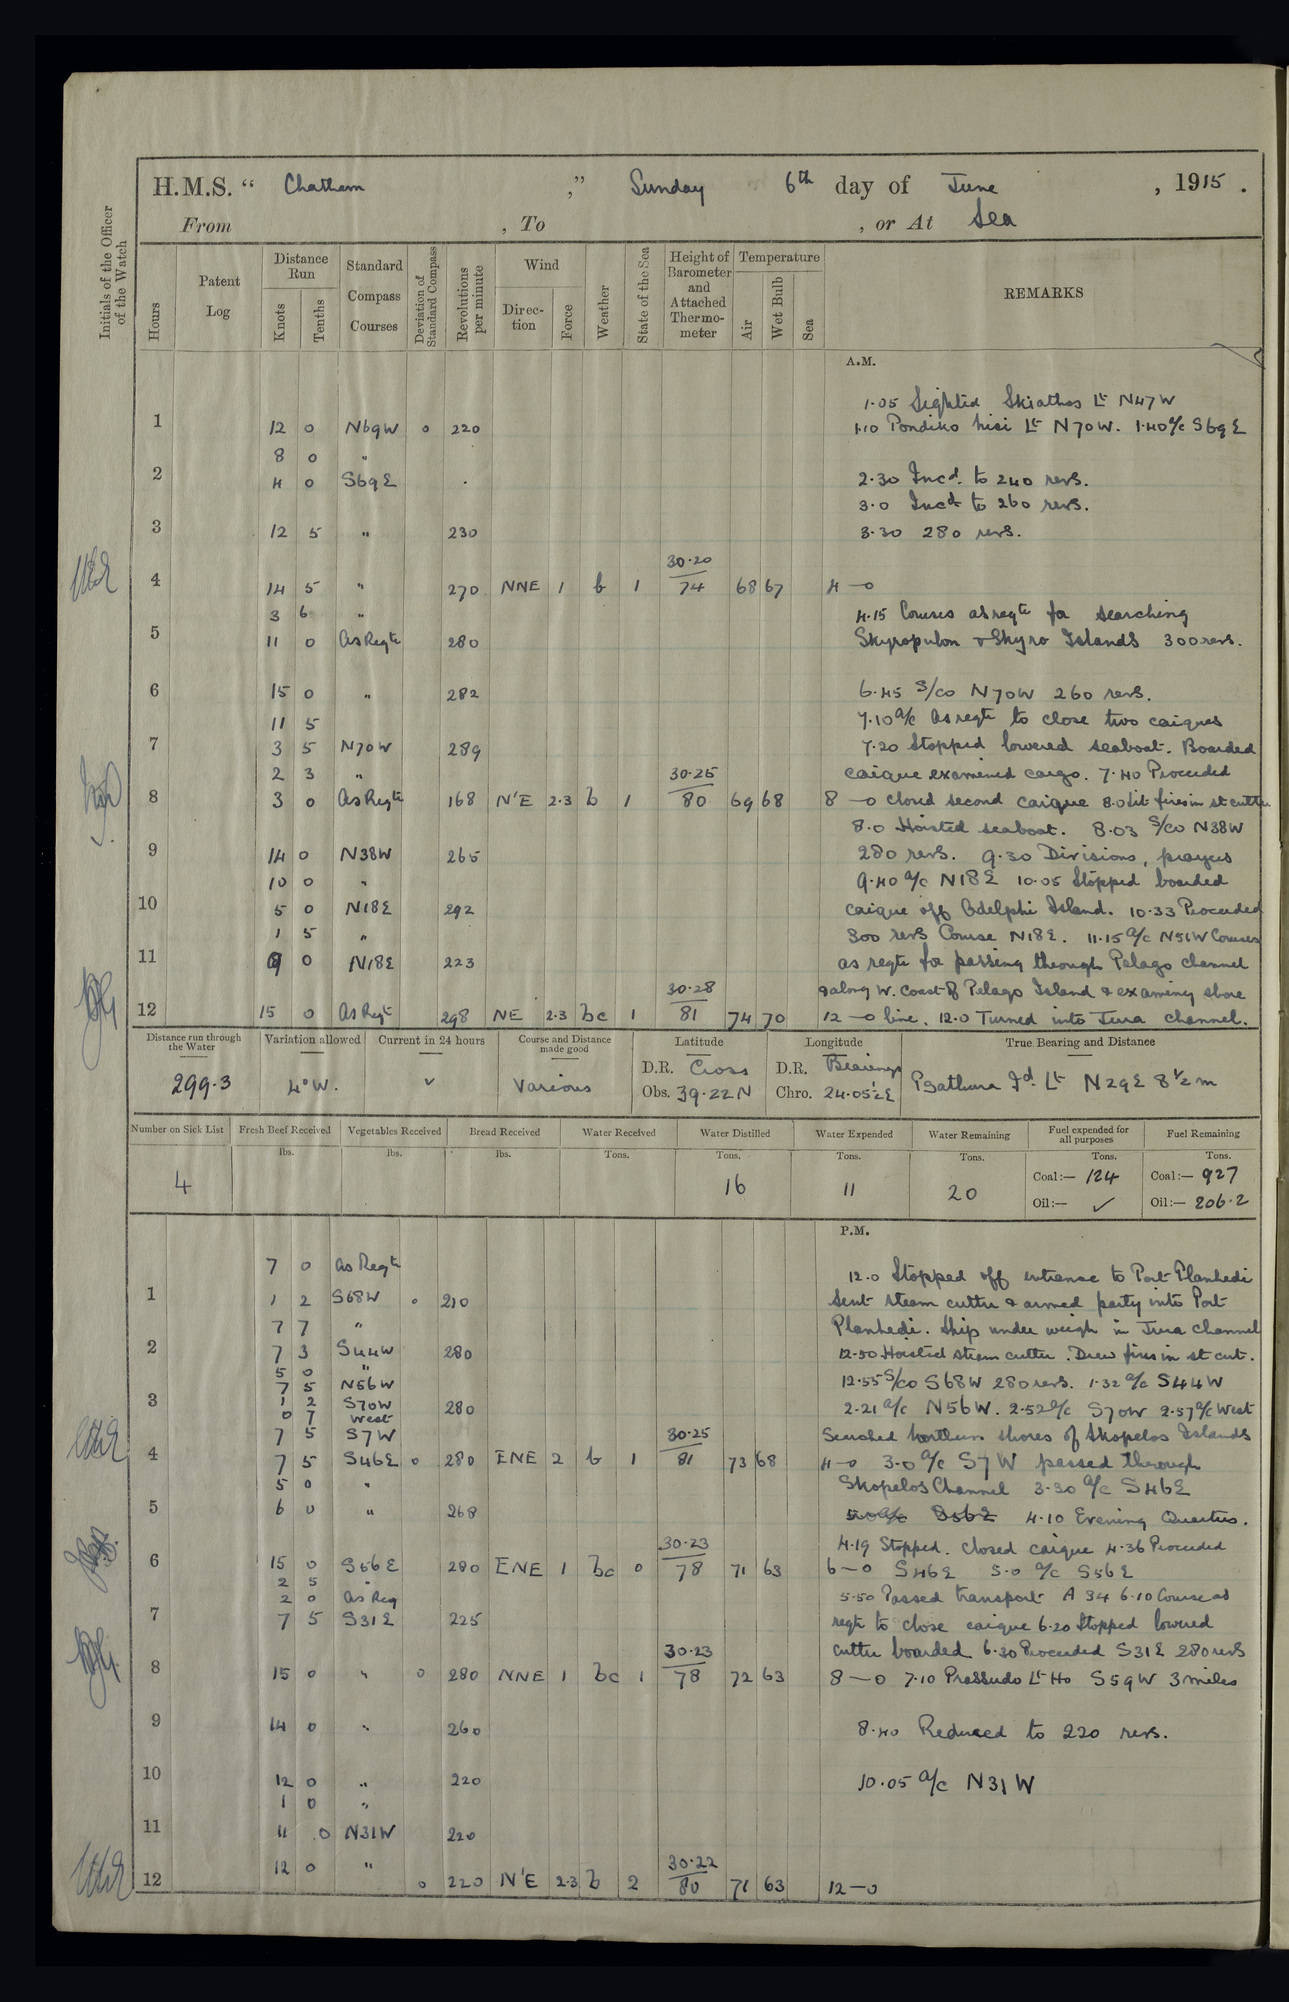 H.M.S. " Chatham ," Sunday 6th day of June , 1915 .
From , To , or At Sea
Initials of the Officer of the Watch
Hours
Patent Log
Distance Run
Knots
Tenths
Standard Compass Courses
Deviation of Standard Compass
Revolutions per minute
Wind
Direction
Force
Weather
State of the Sea
Height of Barometer and Attached Thermometer
Temperature
Air
Wet Bulb
Sea
REMARKS
A.M.
1.05 Sighted Skiathos Lt N47W
1 12 0 N69W 0 220 1.10 Pondiko nisi Lt N70W. 1.40 a/c S69E
8 0 "
2 4 0 S69E . 2.30 Incd. to 240 revs.
3.0 Incd to 260 revs.
3 12 5 " 230 3.30 280 revs.
30.20
4 14 5 " 270 NNE 1 b 1 74 68 67 4 —0
3 6 " 4.15 Courses as reqte for searching
5 11 0 As Reqte 280 Skyropulon & Skyro Islands 300 revs.
6 15 0 " 282 6.45 S/co N70W 260 revs.
11 5 7.10 a/c as reqte to close two caiques
7 3 5 N70W 289 7.20 Stopped lowered seaboat. Boarded
2 3 " 30.25 caique examined cargo. 7.40 Proceeded
8 3 0 As Reqte 168 N'E 2.3 b 1 80 69 68 8 —0 closed second caique 8.0 Lit fires in st cutter
8.0 Hoisted seaboat. 8.03 S/co N38W
9 14 0 N38W 265 280 revs. 9.30 Divisions, prayers
10 0 " 9.40 a/c N18E 10.05 Stopped boarded
10 5 0 N18E 292 caique off Adelphi Island. 10.33 Proceeded
1 5 " 300 revs Course N18E. 11.15 a/c N51W Courses
11 9 0 N18E 223 as reqte for passing through Pelago channel
30.28 & along W. coast of Pelago Island & examing shore
12 15 0 As Reqte 298 NE 2.3 bc 1 81 74 70 12 —0 line. 12.0 Turned into Jura channel.
Distance run through the Water
299.3
Variation allowed
4°W.
Current in 24 hours
✓
Course and Distance made good
Various
Latitude
D.R. Cross
Obs. 39.22N
Longitude
D.R. Bearings
Chro. 24.05½E
True Bearing and Distance
Psathura Id. Lt N29E 8½m
Number on Sick List
4
Fresh Beef Received
lbs.
Vegetables Received
lbs.
Bread Received
lbs.
Water Received
Tons.
Water Distilled
Tons.
16
Water Expended
Tons.
11
Water Remaining
Tons.
20
Fuel expended for all purposes
Tons.
Coal:— 124
Oil:— ✓
Fuel Remaining
Tons.
Coal:— 927
Oil:— 206.2
P.M.
7 0 as Reqte 12.0 Stopped off entrance to Port Planhedi
1 1 2 S68W 0 210 Sent steam cutter & armed party into Port
7 7 " Planhedi. Ship under weigh in Jura channel
2 7 3 S44W 280 12.50 Hoisted steam cutter. Drew fires in st cut.
5 0 "
7 5 N56W 12.55 S/co S68W 280 revs. 1.32 a/c S44W
3 1 2 S70W 280 2.21 a/c N56W. 2.52 a/c S70W 2.57 a/c West
0 7 West
7 5 S7W 30.25 Searched northern shores of Skopelos Islands
4 7 5 S46E 0 280 ENE 2 b 1 81 73 68 4 —0 3.0 a/c S7W passed through
5 0 " Skopelos Channel 3.30 a/c S46E
5 6 0 " 268 5.0 a/c S56E 4.10 Evening Quarters.
30.23 4.19 Stopped. closed caique 4.36 Proceeded
6 15 0 S56E 280 ENE 1 bc 0 78 71 63 6 —0 S46E 5.0 a/c S56E
2 5 "
2 0 as Req 5.50 Passed transport A 34 6.10 Course as
7 7 5 S31E 225 reqte to close caique 6.20 Stopped lowered
30.23 cutter boarded 6.30 Proceeded S31E 280 revs
8 15 0 " 0 280 NNE 1 bc 1 78 72 63 8 —0 7.10 Prassudo Lt Ho S59W 3 miles
9 14 0 " 260 8.40 Reduced to 220 revs.
10 12 0 " 220 10.05 a/c N31W
1 0 "
11 11 0 N31W 220
12 0 " 30.22
12 0 220 N'E 2.3 b 2 80 71 63 12 —0